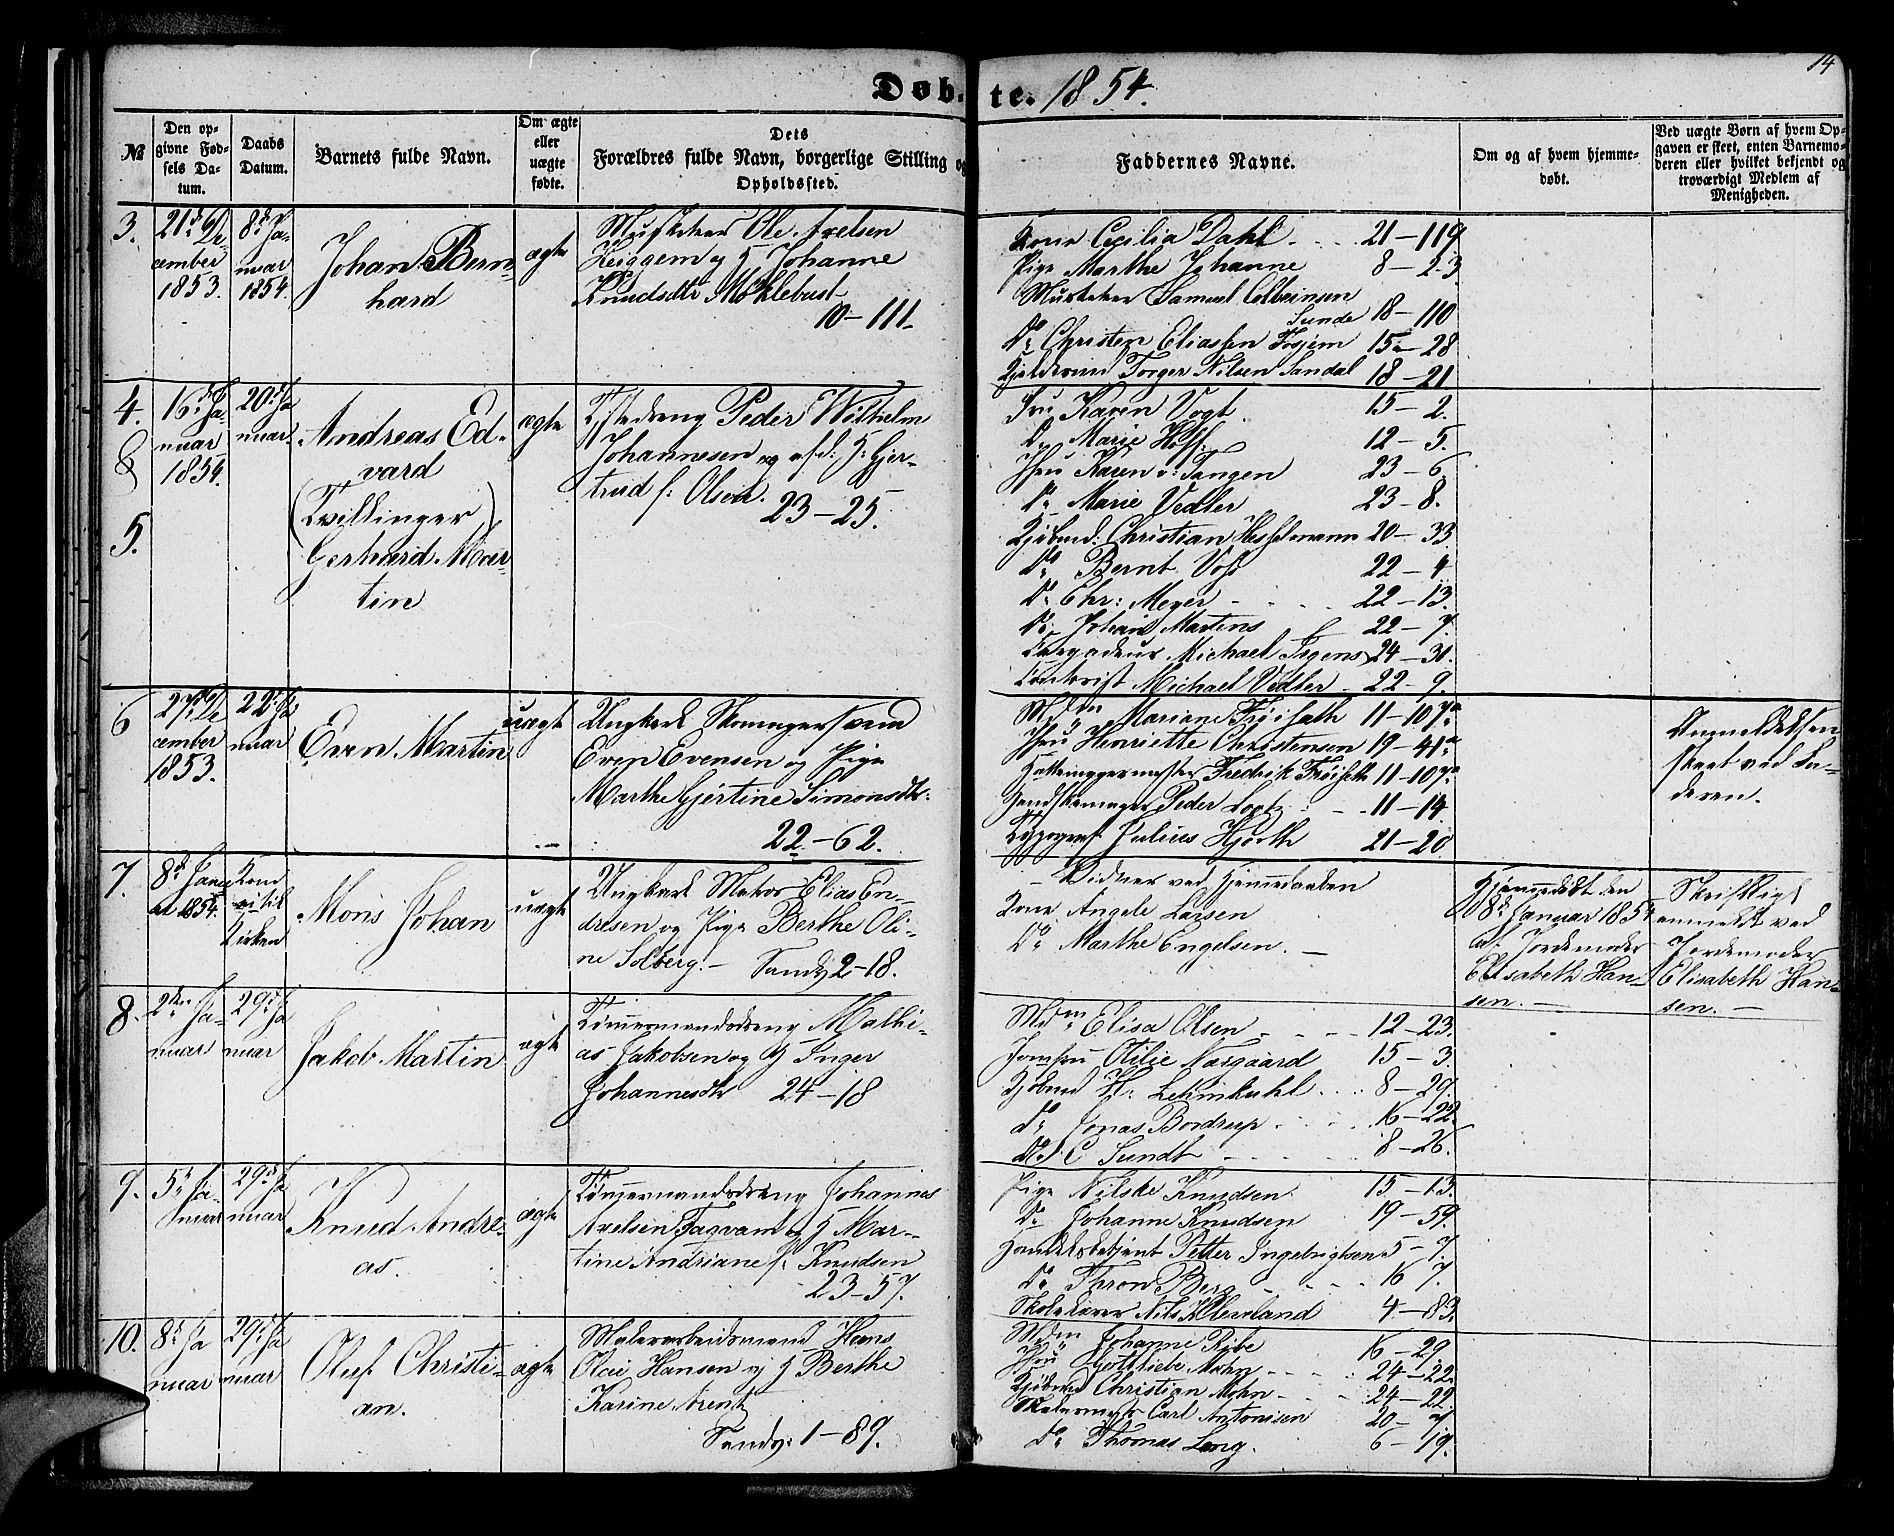 14
Døb-te. 1854.
№
Den opgivne Fødsels Datum.
Daabs Datum.
Barnets fulde Navn.
Om ægte eller uægte fødte.
Dets
Forældres fulde Navn, borgerlige Stilling og
Opholdssted.
Faddernes Navne.
Om og af hvem hjemme-
døbt.
Ved uægte Børn af hvem Op-
gaven er skeet, enten Barnemo-
deren eller hvilket bekjendt og
troværdigt Medlem af
Menigheden.
3.
21de De-
cember
1853.
8de Ja-
nuar
1854.
Johan Bern-
hard
ægte
Musketeer Ole Axelsen
og H Johanne
Knudsdtr Möklebust
10-111.
Kone Cecilia Dahl 21-119
Pige Marthe Johanne 8-23
Musketeer Samuel Colbeinsen
Sunde 18-110
Do Christen Eliassen 15-28
Torger Nilsen Sandal 18-21
4.
&
5.
16de Ja-
nuar
1854.
20de Ja
nuar
Andreas Ed-
vard
(Tvillinger)
Gerhard Mar-
tin
ægte
Peder Wilhelm
Johannesen og H: Gjer-
trud f: Olsen.
23-25.
Fru Karen Vogt 15-2.
Do Marie Hoff. 12-5.
Jfru Karen v: Tangen 23-6
Do Marie Vedler 23-8.
Kjøbmd: Christian Hesselmann 20-33
Do Bernt Voss 22-4
Do Chr: Meyer 22-13.
Do Johan Martens 22-7.
Michael Irgens 24-31.
Contorist Michael Vedler 22-9.
6
27de De
cember
1853.
22de Ja
nuar
Even Martin
uægte
Ungkarl
Even Evensen og Pige
Marthe Gjertine Simonsdtr:
22-62.
Mdm Mariane Fröiseth 11-107a
Jfru Henriette Christensen 19-41a
Fredrik Fröiseth 11-107a
Peder 11-14
Typograf Julius Hjorth 21-20
Anmeldelsen
skeet ved Fa-
deren.
7.
8de Janu
ar 1854.
til
Kirken
Mons Johan
uægte
Ungkarl Matros Elias En-
dresen og Pige Berthe Oli-
ne Solberg. Sandv 2-18.
Vidner ved Hjemmedaaben
Kone Angele Larsen
Do Marthe Engelsen.
Hjemmedøbt den
8de Januar 1854
af Jordemoder
Elisabeth Han-
sen.
Skriftligt
anmeldt ved
Jordemoder
Elisabeth Han-
sen.
8.
2den Ja-
nuar
29de Ja
nuar
Jakob Martin
ægte
Tømmermandsdreng Mathi-
as Jakobsen og H Inger
Johannesdtr 24-18
Mdm Elisa Olsen 12-23.
Jomfru Otilie Norgaard 15-3.
Kjøbmd H: Lehmkuhl 8-29.
do Jonas Bordrup 16-22.
Do J C Sundt 8-26.
9.
5te Ja-
nuar
29de Ja
nuar
Knud Andre-
as.
ægte
Tømmermandsdreng Johannes
Axelsen Fagvam og H Mar-
tine Andriane f: Knudsen
23-57.
Pige Nilske Knudsen 15-13.
Do Johanne Knudsen 19-59.
Handelsbetjent Petter Ingebrigtsen 5-7.
Do Thron Berg 16 7.
Skolelærer Nils Kleveland 4-83.
10.
8de Ja
nuar
29de Ja
nuar
Oluf Christi-
an.
ægte
Malerarbeidsmand Hans
Olai Hansen og H Berthe
Karine Arentz
Sandv: 1-89.
Mdm Johanne Ribe 16-29
Jfru Gottliebe Mohn 24-22.
Kjøbmd Christian Mohn 24-22.
Malermester Carl Antonisen 20-7.
Do Thomas Lang. 6-19.